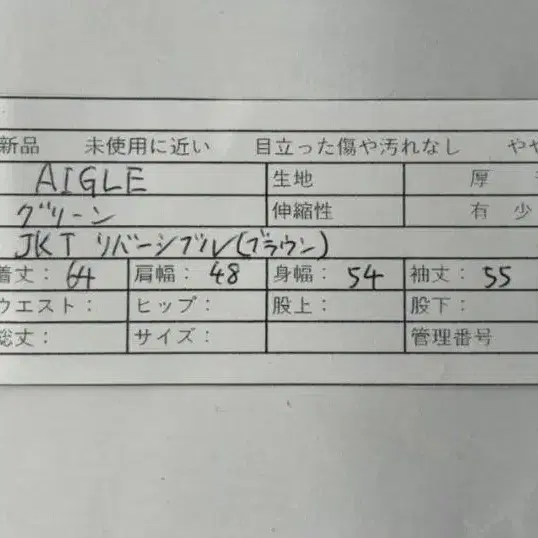 新品 未使用に近い 目立った傷や汚れなし やや
AIGLE 生地 厚
グリーン 伸縮性 有 少
JKT リバーシブル(ブラウン)
着丈: 64 肩幅: 48 身幅: 54 袖丈: 55
ウエスト: ヒップ: 股上: 股下:
総丈: サイズ: 管理番号